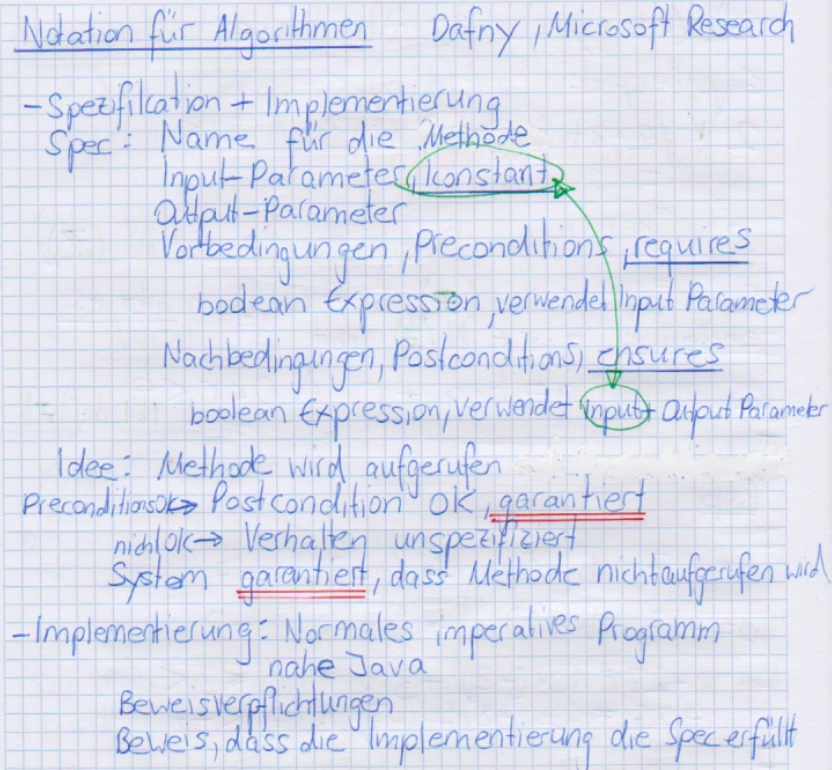 Notation für Algorithmen Dafny, Microsoft Research
- Spezifikation + Implementierung
Spec: Name für die Methode
Input-Parameter, konstant
Output-Parameter
Vorbedingungen, Preconditions, requires
boolean Expression, verwendet Input Parameter
Nachbedingungen, Postconditions, ensures
boolean Expression, verwendet Input + Output Parameter
Idee: Methode wird aufgerufen
Preconditions OK → Postcondition OK, garantiert
nicht OK → Verhalten unspezifiziert
System garantiert, dass Methode nicht aufgerufen wird
- Implementierung: Normales imperatives Programm
nahe Java
Beweisverpflichtungen
Beweis, dass die Implementierung die Spec erfüllt